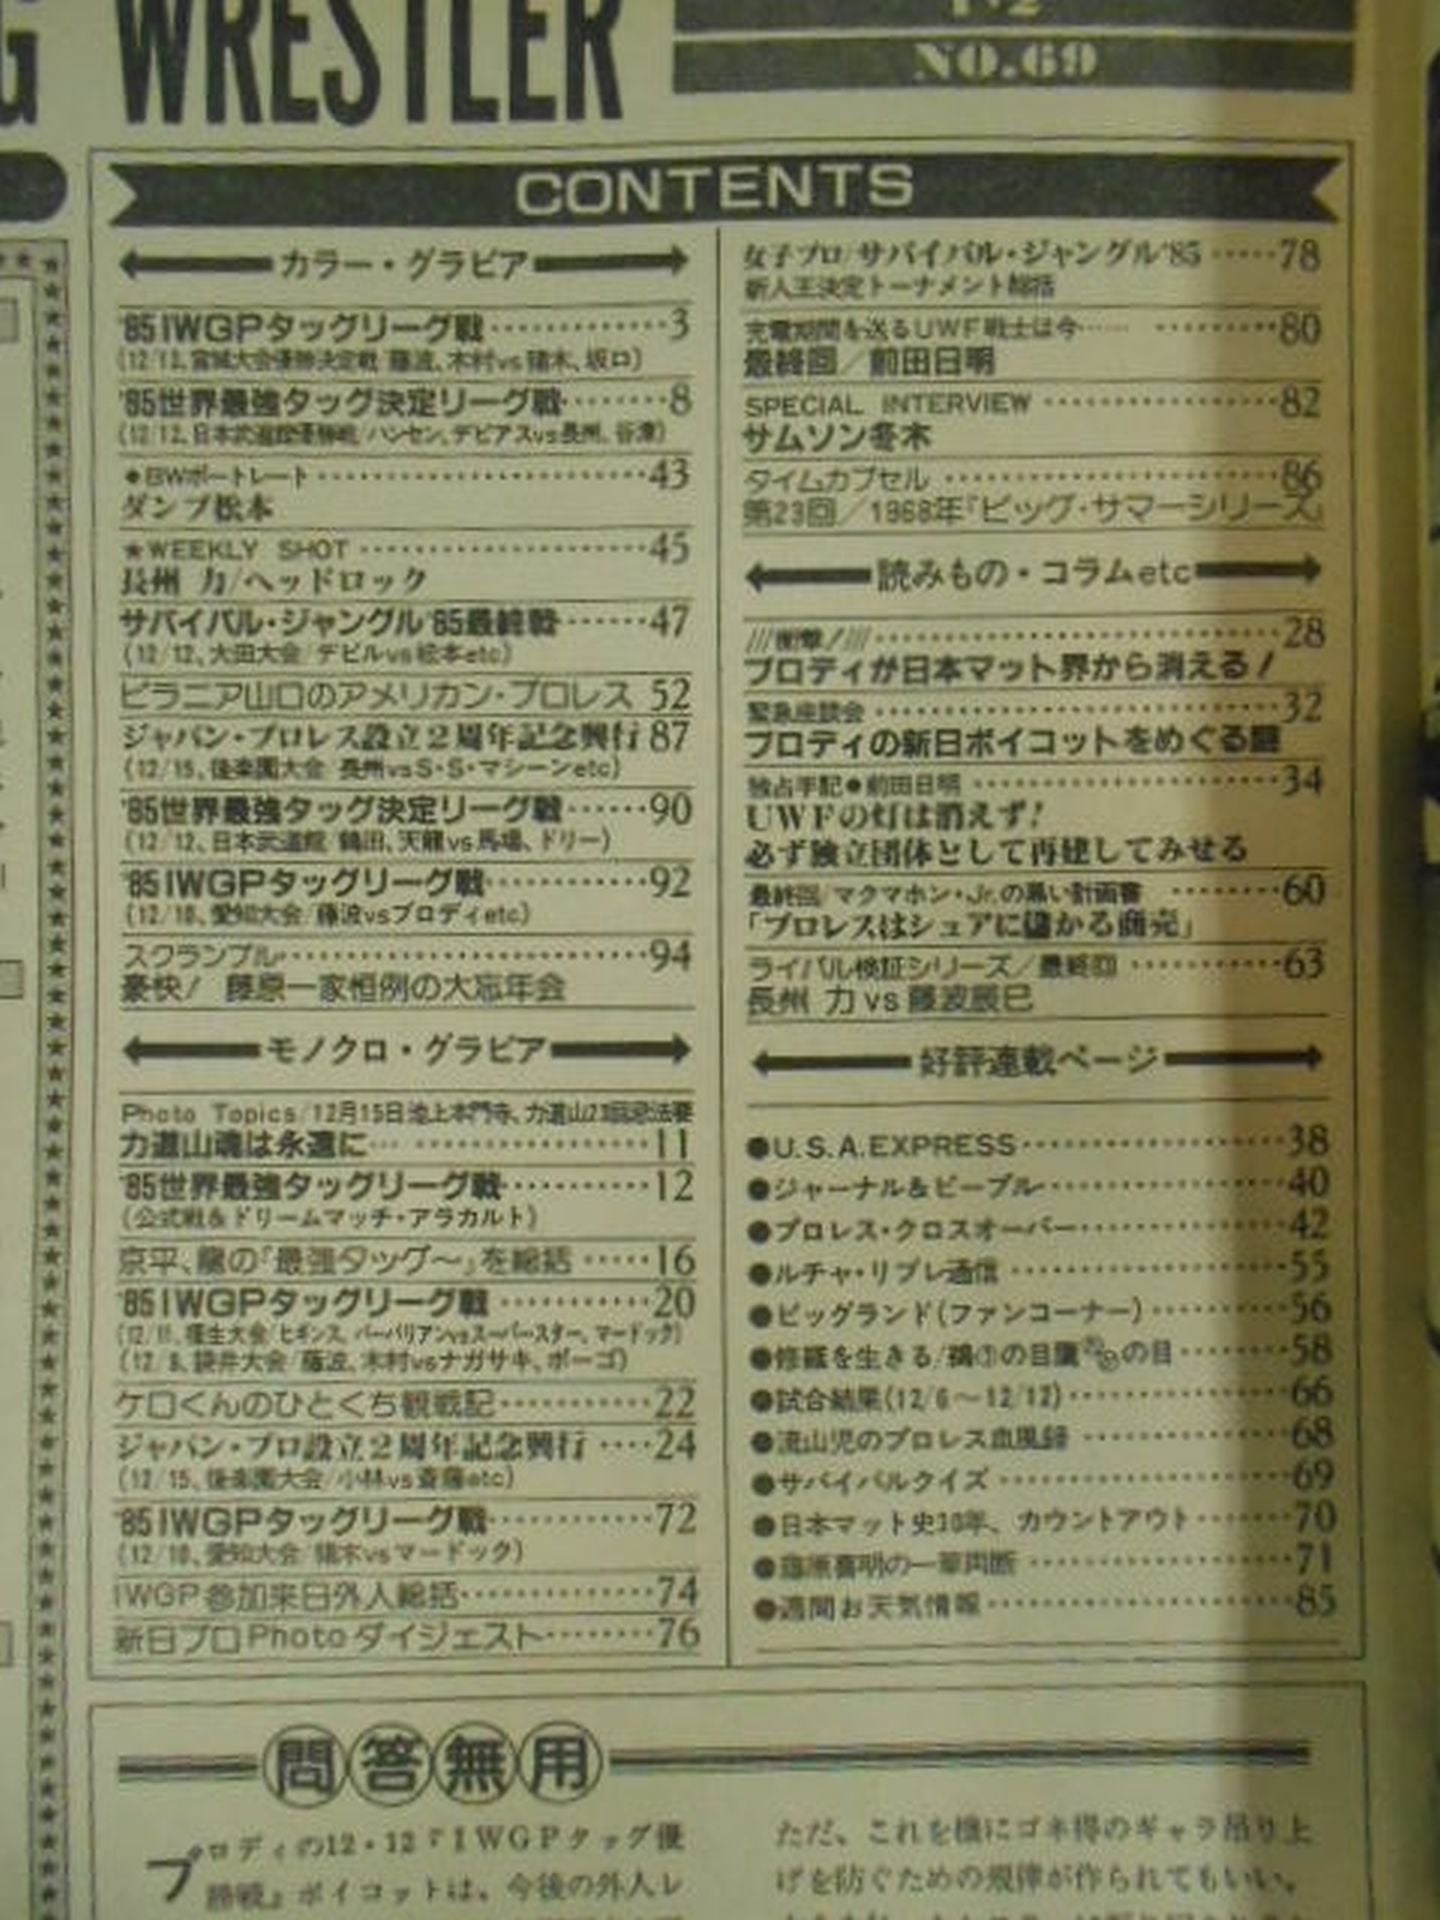 G WRESTLER
NO.69
CONTENTS
カラー・グラビア
'85 IWGPタッグリーグ戦…………3
(12/12、宮城大会優勝決定戦/藤波、木村vs猪木、坂口)
'85世界最強タッグ決定リーグ戦………8
(12/12、日本武道館優勝戦/ハンセン、デビアスvs長州、谷津)
●BWポートレート…………43
ダンプ松本
★WEEKLY SHOT…………45
長州 力/ヘッドロック
サバイバル・ジャングル'85最終戦……47
(12/12、大田大会/デビルvs松本etc)
ピラニア山口のアメリカン・プロレス 52
ジャパン・プロレス設立2周年記念興行 87
(12/15、後楽園大会 長州vsS・S・マシーンetc)
'85世界最強タッグ決定リーグ戦……90
(12/12、日本武道館 鶴田、天龍vs馬場、ドリー)
'85 IWGPタッグリーグ戦…………92
(12/10、愛知大会/藤波vsブロディetc)
スクランブル…………94
豪快! 藤原一家恒例の大忘年会
モノクロ・グラビア
Photo Topics/12月15日池上本門寺、力道山23回忌法要
力道山魂は永遠に…………11
'85世界最強タッグリーグ戦…………12
(公式戦&ドリームマッチ・アラカルト)
京平、龍の『最強タッグ〜』を総括……16
'85 IWGPタッグリーグ戦…………20
(12/11、福生大会/ヒギンス、バーバリアンvsスーパースター、マードック)
(12/8、袋井大会/藤波、木村vsナガサキ、ポーゴ)
ケロくんのひとくち観戦記…………22
ジャパン・プロ設立2周年記念興行……24
(12/15、後楽園大会/小林vs斎藤etc)
'85 IWGPタッグリーグ戦…………72
(12/10、愛知大会/猪木vsマードック)
IWGP参加来日外人総括…………74
新日プロPhotoダイジェスト………76
女子プロ/サバイバル・ジャングル'85……78
新人王決定トーナメント総括
充電期間を送るUWF戦士は今…… ………80
最終回/前田日明
SPECIAL INTERVIEW…………82
サムソン冬木
タイムカプセル…………86
第23回/1968年『ビッグ・サマーシリーズ』
読みもの・コラムetc
///衝撃!///…………28
ブロディが日本マット界から消える!
緊急座談会…………32
ブロディの新日ボイコットをめぐる謎
独占手記●前田日明…………34
UWFの灯は消えず!
必ず独立団体として再建してみせる
最終回/マクマホン・Jr.の黒い計画書………60
「プロレスはシェアに儲かる商売」
ライバル検証シリーズ/最終回…………63
長州 力vs藤波辰巳
好評連載ページ
●U.S.A.EXPRESS…………38
●ジャーナル&ピープル…………40
●プロレス・クロスオーバー…………42
●ルチャ・リブレ通信…………55
●ビッグランド(ファンコーナー)………56
●修羅を生きる/鵜の目鷹の目………58
●試合結果(12/6〜12/12)…………66
●流山児のプロレス血風録…………68
●サバイバルクイズ…………69
●日本マット史10年、カウントアウト………70
●藤原喜明の一筆両断…………71
●週間お天気情報…………85
問答無用
ブロディの12・12『IWGPタッグ優
勝戦』ボイコットは、今後の外人レ
ただ、これを機にゴネ得のギャラ吊り上
げを防ぐための規律が作られてもいい。